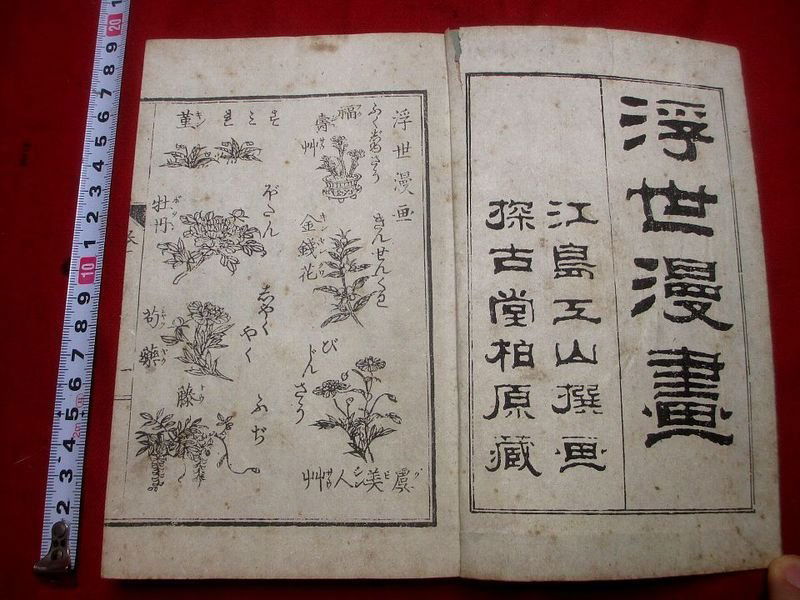 浮世漫畫
江島五山撰画
探古堂柏原藏
浮世漫画
福壽艸
ふくじゅさう
金錢花
きんせんくわ
虞美人艸
びじんさう
菫
すミれ
牡丹
ぼたん
芍藥
志やくやく
藤
ふぢ
20
9 8 7 6 5 4 3 2 1
10
9 8 7 6 5 4 3 2